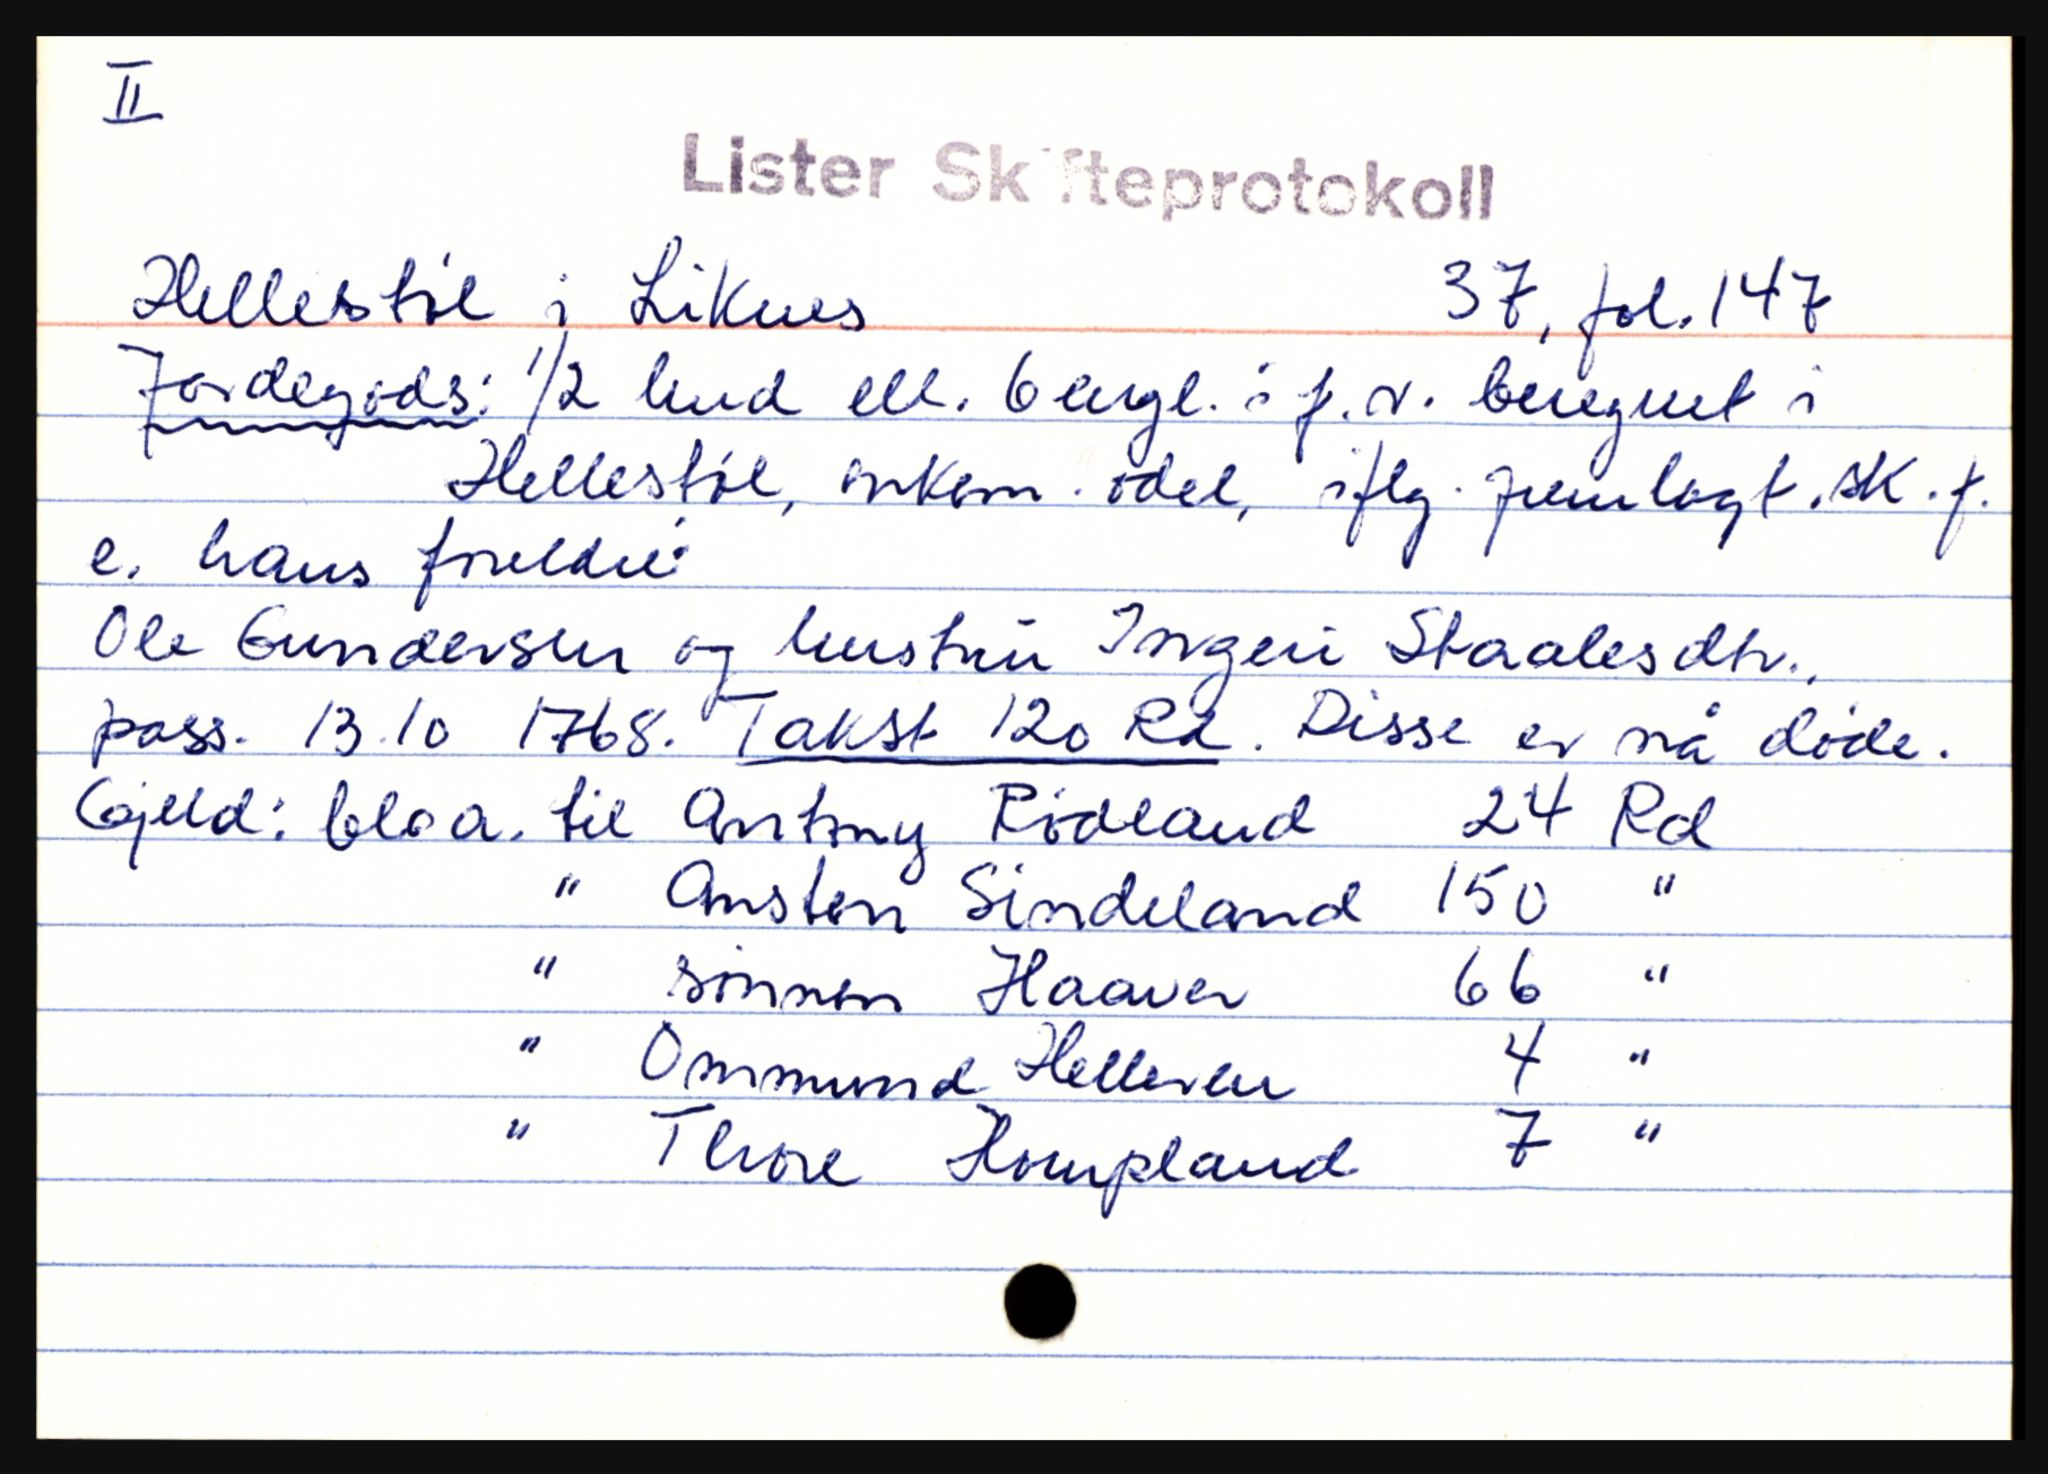 II
Lister Skifteprotokoll
Hellestøl i Liknes 37, fol. 147
Jordegods: 1/2 hud ell. 6 engl. i f. v. beregnet i
Hellestøl, omkom. odel, iflg. fremlagt. sk. f.
e. hans foreldre:
Ole Gundersen og hustru Ingeri Staalesdtr.,
pass. 13.10 1768. Takst 120 Rd. Disse er nå døde.
Gjeld: bl. a. til Antony Rødland 24 Rd
" Austen Sindeland 150 "
" sønnen Haaver 66 "
" Ommund Helleren 4 "
" Thore Hompland 7 "